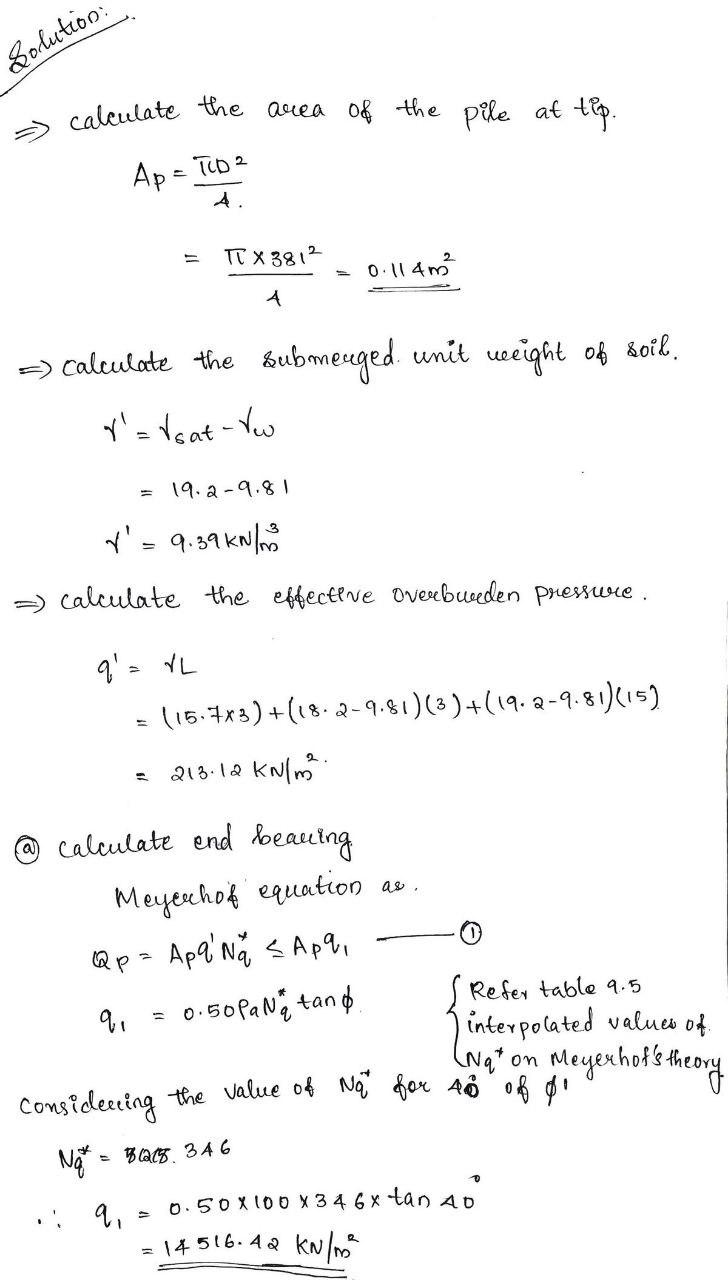 Solution:
=> calculate the area of the pile at tip.
Ap = πD²
4.
= π × 381² = 0.114m²
4
=> calculate the submerged. unit weight of soil.
γ' = γsat - γw
= 19.2 - 9.81
γ' = 9.39 KN/m³
=> calculate the effective overburden pressure.
q' = γL
= (15.7×3)+(18.2-9.81)(3)+(19.2-9.81)(15)
= 213.12 KN/m².
ⓐ calculate end bearing
Meyerhof equation as.
Qp = Apq'Nq* ≤ Apq₁ ——— ①
q₁ = 0.50PaNq* tanϕ
{ Refer table 9.5
interpolated values of.
Nq* on Meyerhof's theory
Considering the value of Nq* for 40° of ϕ'
Nq* = 346
∴ q₁ = 0.50×100×346×tan 40°
= 14516.42 KN/m²